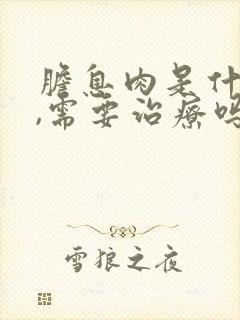 膽息肉是什
,需要治療嗎
雪狼之夜